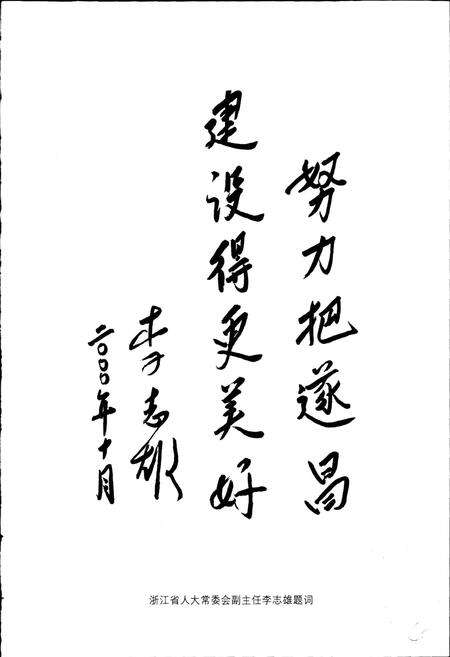 努力把遂昌
建设得更美好
李志雄
二〇〇〇年十月
浙江省人大常委会副主任李志雄题词